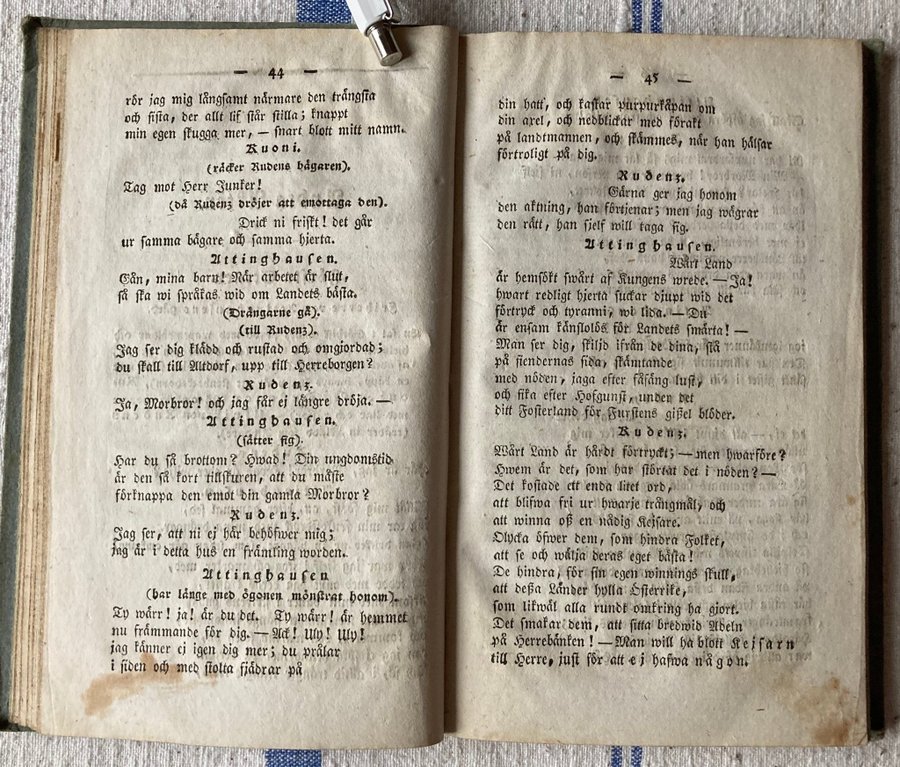 — 44 —
rör jag mig långsamt närmare den trängsta
och sista, der allt lif står stilla; knappt
min egen skugga mer, — snart blott mitt namn.
Kuoni.
(räcker Rudens bägaren).
Tag mot Herr Junker!
(då Rudenz dröjer att emottaga den).
Drick ni friskt! det går
ur samma bägare och samma hjerta.
Attinghausen.
Gån, mina barn! När arbetet är slut,
så ska wi språkas wid om Landets bästa.
(Drängarne gå).
(till Rudenz).
Jag ser dig klädd och rustad och omgjordad;
du skall till Altdorf, upp till Herreborgen?
Rudenz.
Ja, Morbror! och jag får ej längre dröja. —
Attinghausen.
(sätter sig).
Har du så brottom? Hwad! Din ungdomstid
är den så kort tillskuren, att du måste
förknappa den emot din gamla Morbror?
Rudenz.
Jag ser, att ni ej här behöfwer mig;
jag är i detta hus en främling worden.
Attinghausen
(har länge med ögonen mönstrat honom).
Ty wärr! ja! är du det. Ty wärr! är hemmet
nu främmande för dig. — Ack! Uly! Uly!
jag känner ej igen dig mer; du prålar
i siden och med stolta fjädrar på
— 45 —
din hatt, och kastar purpurkåpan om
din axel, och nedblickar med förakt
på landtmannen, och skämmes, när han hälsar
förtroligt på dig.
Rudenz.
Gärna ger jag honom
den aktning, han förtjenar; men jag wägrar
den rätt, han sjelf will taga sig.
Attinghausen.
Wårt Land
är hemsökt swårt af Kungens wrede. — Ja!
hwart redligt hjerta suckar djupt wid det
förtryck och tyranni, wi lida. — Du
är ensam känslolös för Landets smärta! —
Man ser dig, skiljd ifrån de dina, stå
på fiendernas sida, skämtande
med nöden, jaga efter fåfäng lust,
och fika efter Hofgunst, under det
ditt Fosterland för Furstens gißel blöder.
Rudenz.
Wårt Land är hårdt förtryckt; — men hwarföre?
Hwem är det, som har störtat det i nöden? —
Det kostade ett enda litet ord,
att blifwa fri ur hwarje trångmål, och
att winna oß en nådig Kejsare.
Olycka öfwer dem, som hindra Folket,
att se och wälja deras eget bästa!
De hindra, för sin egen winnings skull,
att deßa Länder hylla Österrike,
som likwäl alla rundt omkring ha gjort.
Det smakar dem, att sitta bredwid Adeln
på Herrebänken! — Man will ha blott Kejsarn
till Herre, just för att ej hafwa någon.